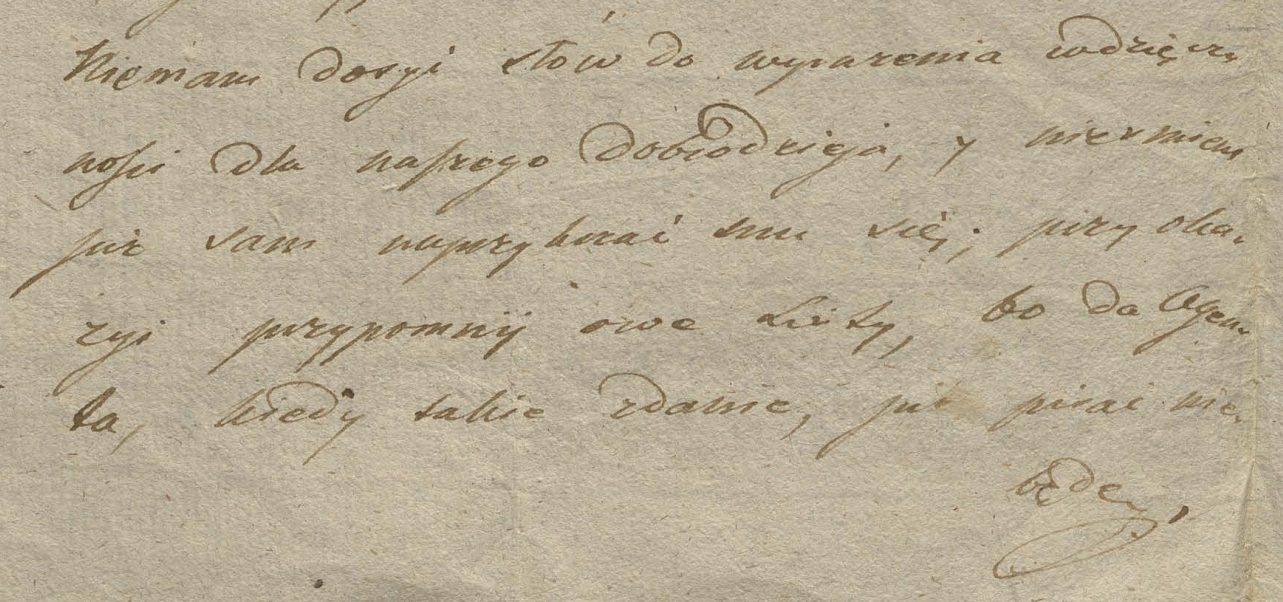 Niemam dosyć słów do wyrażenia wdzięcz,
ności dla naszego Dobrodzieja, y nieśmiem
już sam naprzykrzać mu się; przy oka,
zyi przypomnij owe Listy, bo do Agen,
ta, kiedy takie zdanie, już pisać nie,
będę,